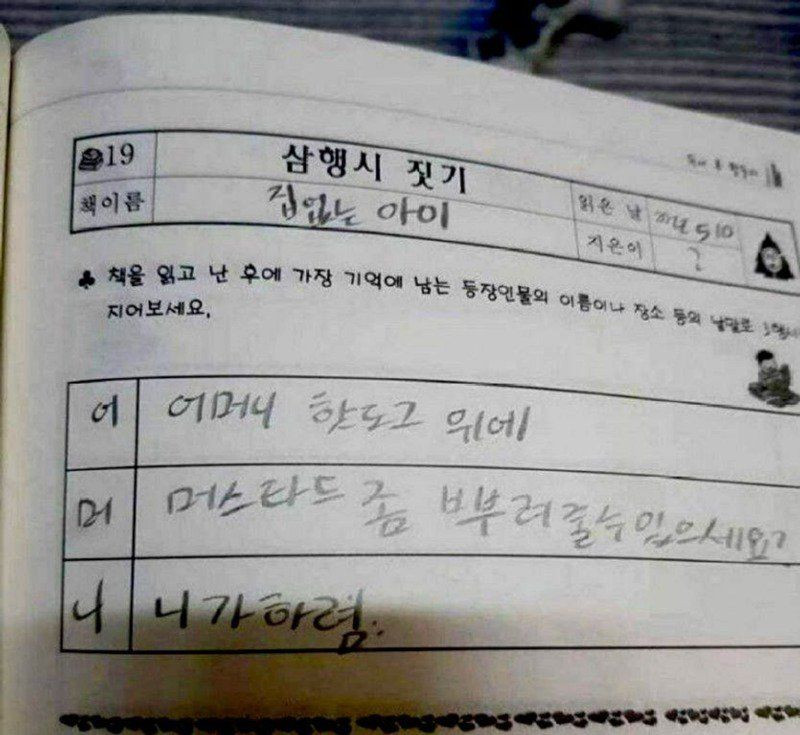 19 삼행시 짓기
책이름 집없는 아이
읽은 날 2014 5 10
지은이 ?
♣ 책을 읽고 난 후에 가장 기억에 남는 등장인물의 이름이나 장소 등의 낱말로 3행시
지어보세요.
어 어머니 핫도그 위에
머 머스타드 좀 ㅂ부려줄수 있으세요?
니 니가하렴.